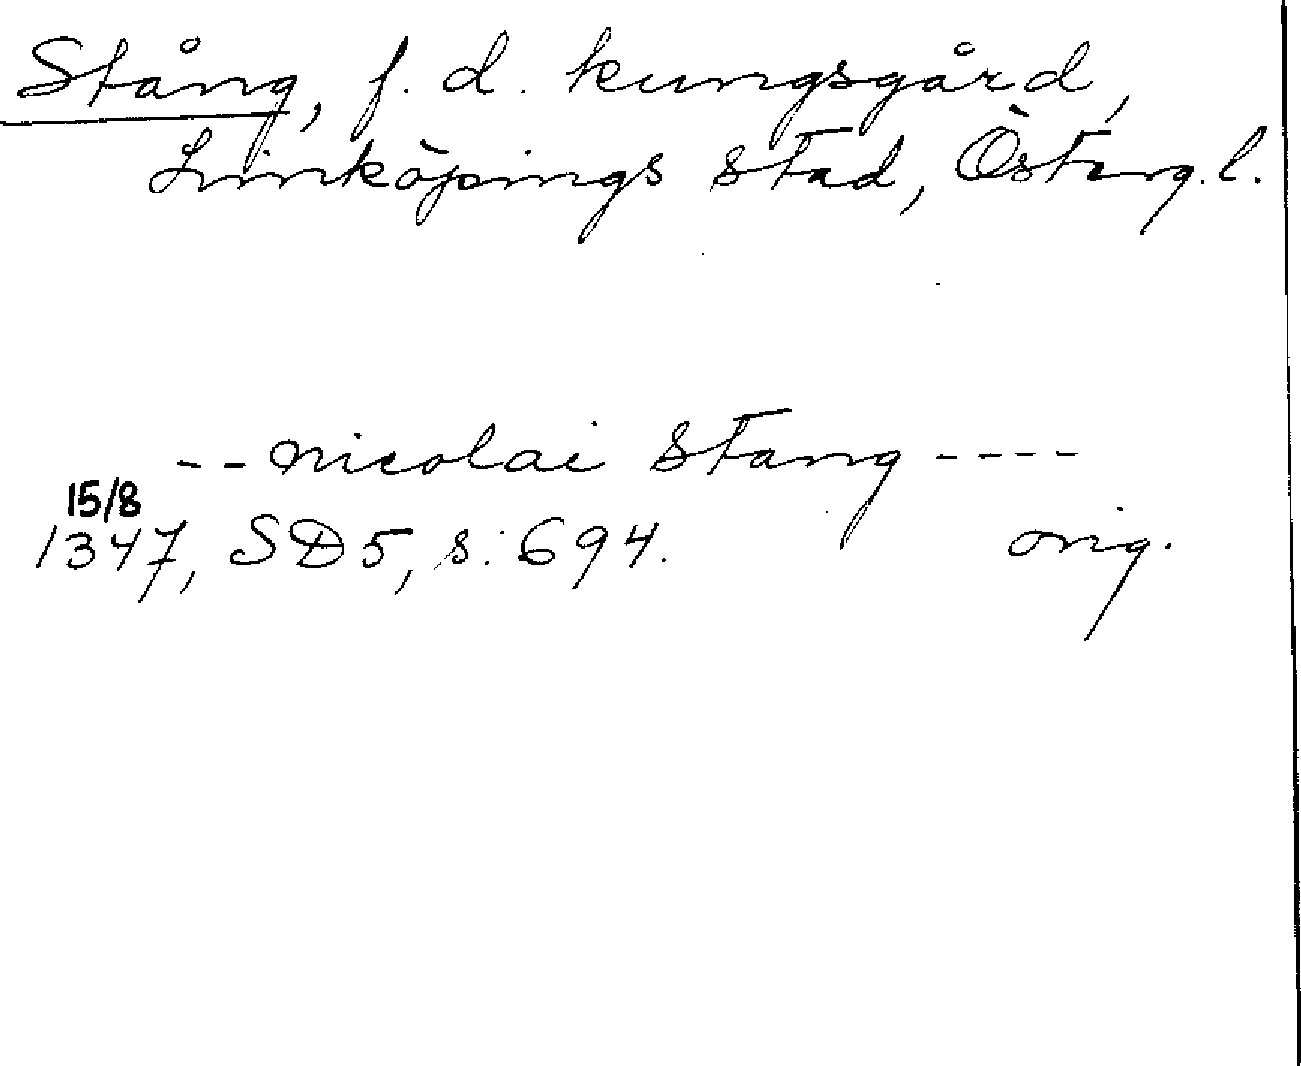 Stång, f. d. kungsgård,
Linköpings stad, Österg. l.
-- nicolai stang ----
15/8
1347, SD5, s. 694. orig.